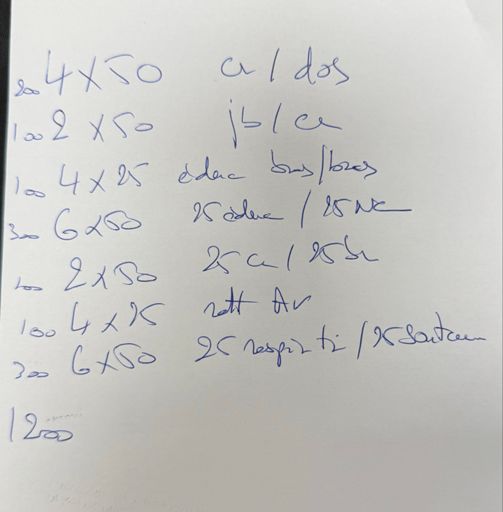 200 4 x 50 cr / dos
100 2 x 50 jb / cr
100 4 x 25 éduc bras/bras
300 6x50 25 éduc / 25 NC
100 2 x 50 25 cr / 25 br
100 4 x 25 Av
300 6x50 25 respi /25
1200